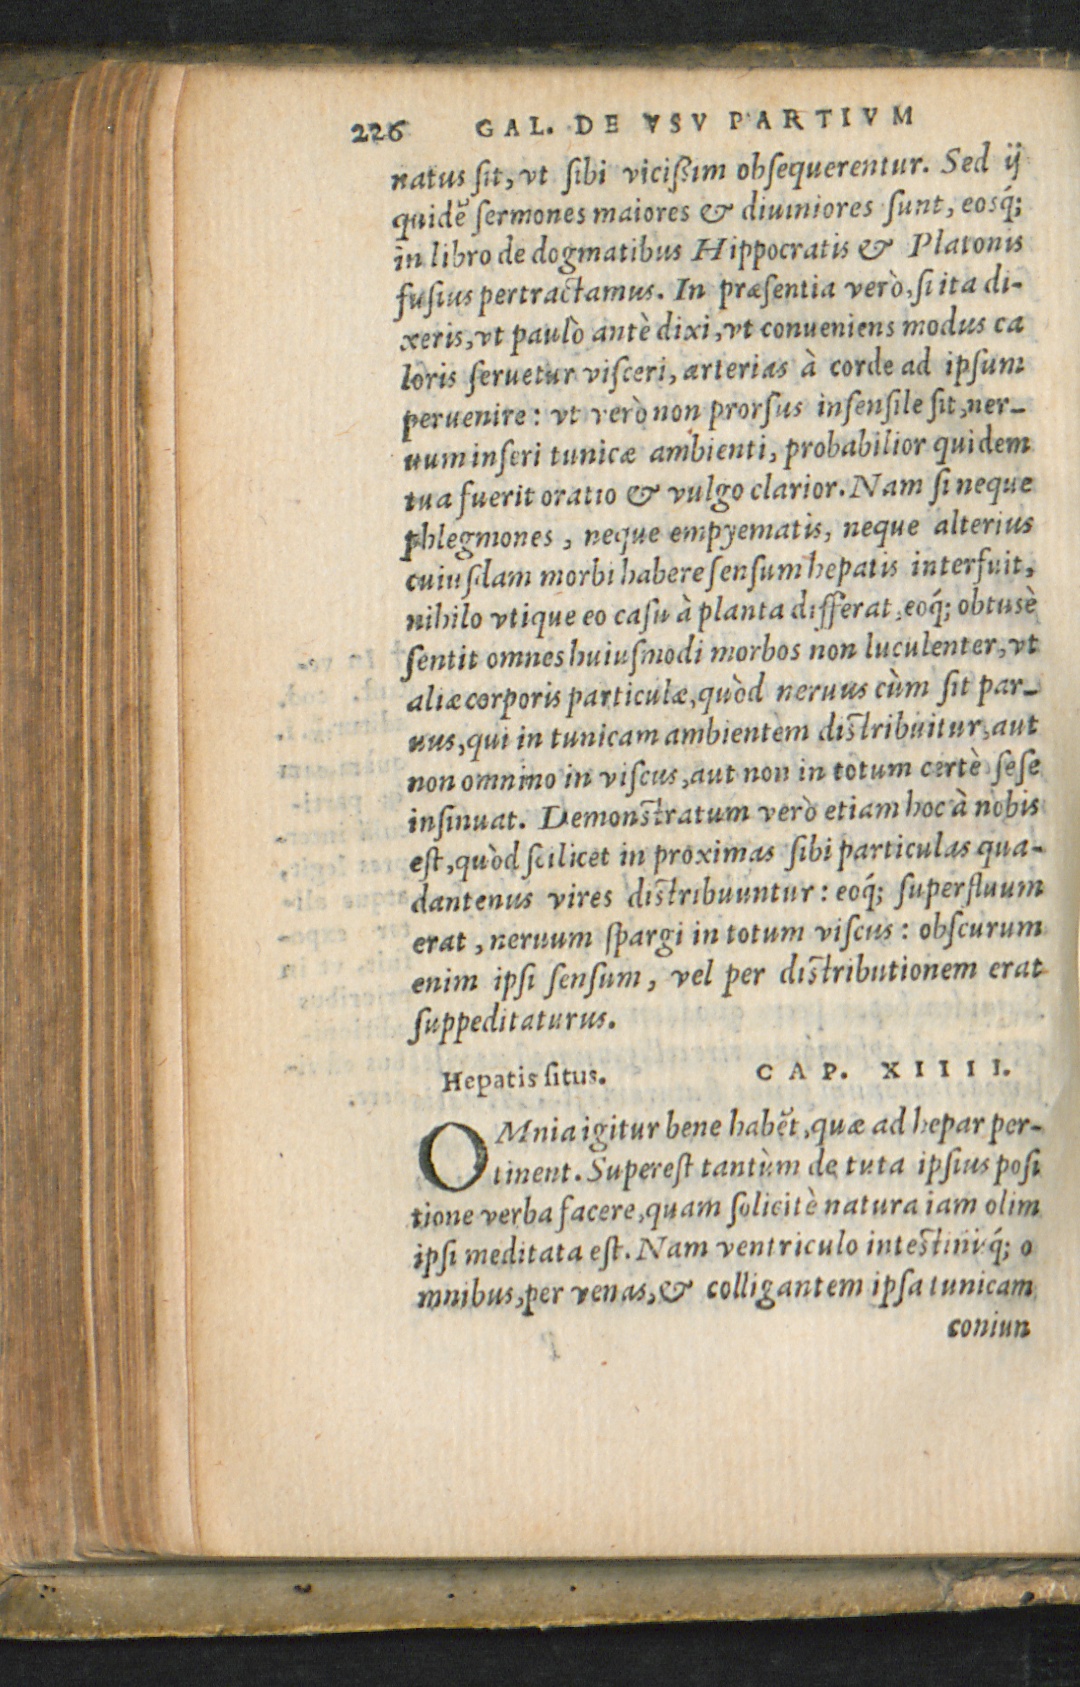 226 GAL. DE VSV PARTIVM
natus ſit, vt ſibi vicißim obſequerentur. Sed ij
quidẽ ſermones maiores & diuiniores ſunt, eosq́;
in libro de dogmatibus Hippocratis & Platonis
fuſius pertractamus. In præſentia verò, ſi ita di-
xeris, vt paulò antè dixi, vt conueniens modus ca
loris ſeruetur viſceri, arterias à corde ad ipſum
peruenire: vt verò non prorſus inſenſile ſit, ner-
uum inſeri tunicæ ambienti, probabilior quidem
tua fuerit oratio & vulgo clarior. Nam ſi neque
phlegmones, neque empyematis, neque alterius
cuiuſdam morbi habere ſenſum hepatis interfuit,
nihilo vtique eo caſu à planta differat, eoq́; obtusè
ſentit omnes huiuſmodi morbos non luculenter, vt
aliæ corporis particulæ, quòd neruus cùm ſit par-
uus, qui in tunicam ambientem diſtribuitur, aut
non omnino in viſcus, aut non in totum certè ſeſe
inſinuat. Demonſtratum verò etiam hoc à nobis
eſt, quòd ſcilicet in proximas ſibi particulas qua-
dantenus vires diſtribuuntur: eoq́; ſuperfluum
erat, neruum ſpargi in totum viſcus: obſcurum
enim ipſi ſenſum, vel per diſtributionem erat
ſuppeditaturus.
Hepatis ſitus. CAP. XIIII.
OMnia igitur bene habẽt, quæ ad hepar per-
tinent. Supereſt tantùm de tuta ipſius poſi
tione verba facere, quam ſolicitè natura iam olim
ipſi meditata eſt. Nam ventriculo inteſtinisq́; o
mnibus, per venas, & colligantem ipſa tunicam
coniun